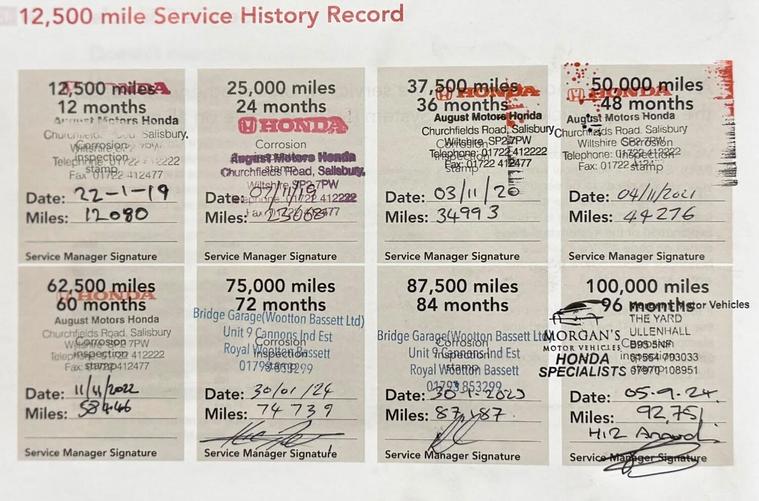 12,500 mile Service History Record
12,500 miles
12 months
HONDA
August Motors Honda
Churchfields Road Salisbury,
Corrosion
inspection
stamp
Telephone 01722 412222
Fax: 01722 412477
Date: 22-1-19
Miles: 12080
Service Manager Signature
25,000 miles
24 months
HONDA
Corrosion
August Motors Honda
Churchfields Road, Salisbury,
Wiltshire SP2 7PW
stamp
Telephone 01722 412222
Fax 01722 412477
Date:
Miles:
Service Manager Signature
37,500 miles
36 months
HONDA
August Motors Honda
Churchfields Road, Salisbury
Corrosion
Wiltshire SP2 7PW
inspection
Telephone: 01722 412222
stamp
Fax: 01722 412477
Date: 03/11/20
Miles: 34993
Service Manager Signature
50,000 miles
48 months
HONDA
August Motors Honda
Churchfields Road, Salisbury
Corrosion
Wiltshire SP2 7PW
inspection
Telephone: 01722 412222
stamp
Fax: 01722
Date: 04/11/2021
Miles: 44276
Service Manager Signature
62,500 miles
60 months
HONDA
August Motors Honda
Churchfields Road, Salisbury
Corrosion
Wiltshire SP2 7PW
inspection
Telephone 01722 412222
stamp
Fax: 01722 412477
Date: 11/11/2022
Miles: 58446
Service Manager Signature
75,000 miles
72 months
Bridge Garage(Wootton Bassett Ltd)
Unit 9 Cannons Ind Est
Corrosion
inspection
Royal Wootton Bassett
stamp
01793 853299
Date: 30/01/24
Miles: 74739
Service Manager Signature
87,500 miles
84 months
Bridge Garage(Wootton Bassett Ltd)
Corrosion
Unit 9 Cannons Ind Est
inspection
Royal Wootton Bassett
stamp
01793 853299
Date:
Miles: 87,187
Service Manager Signature
100,000 miles
96 months
Morgans Motor Vehicles
THE YARD
ULLENHALL
B95 5NF
01564 793033
07970 108951
MORGAN'S
MOTOR VEHICLES
HONDA
SPECIALISTS
Corrosion
inspection
Date: 05-9-24.
Miles: 92,751
Service Manager Signature